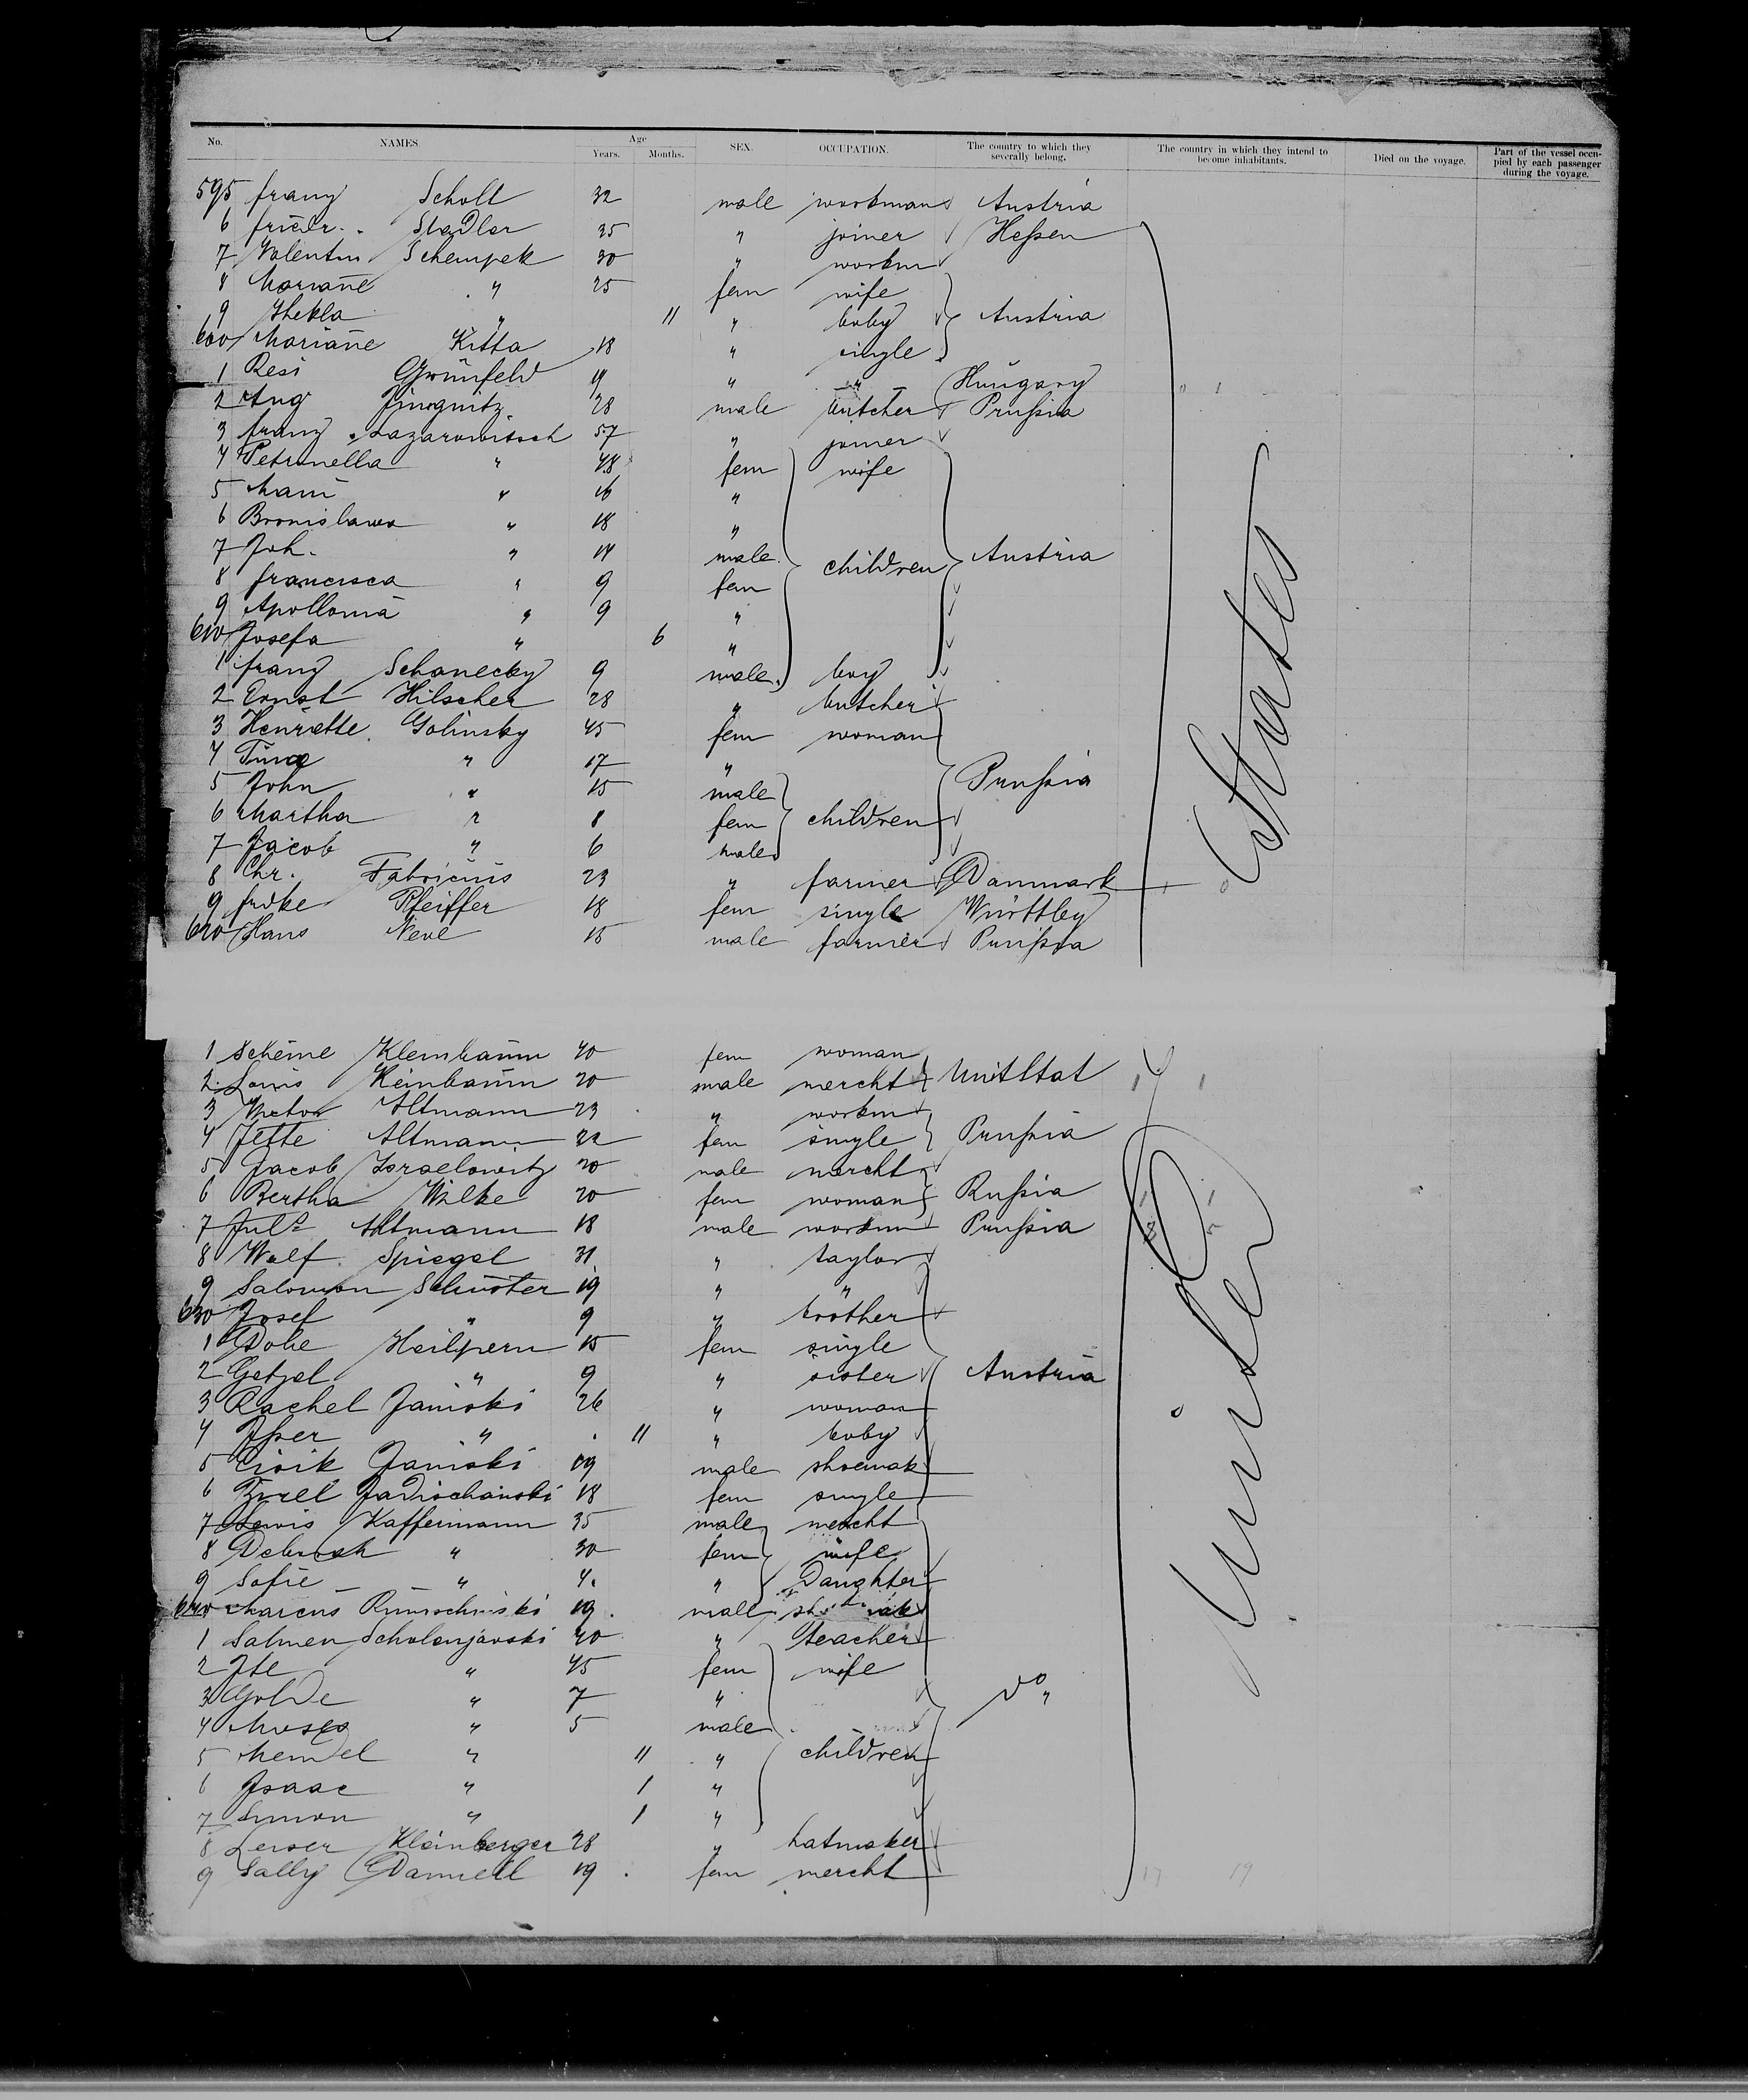 No. NAMES. Age Years. Months. SEX. OCCUPATION. The country to which they severally belong. The country in which they intend to become inhabitants. Died on the voyage. Part of the vessel occupied by each passenger during the voyage.
595 Franz Scholt 32 male workman Austria
6 Friedr. Stadler 35 " joiner Heßen
7 Valentin Schempek 30 " workm
8 Mariane " 25 fem wife
9 Thekla " 11 " baby Austria
600 Mariane Kitta 18 " single
1 Resi Grünfeld 19 " " Hungary
2 Aug 28 male butcher Prußia
3 Franz Lazarowitsch 57 " joiner
4 Petronella " 48 fem wife
5 Mari " 16 "
6 Bronislawa " 18 "
7 Joh. " 14 male children Austria
8 Francisca " 9 fem
9 Apollonia " 9 "
610 Josefa " 6 "
1 Franz Schanecky 9 male boy
2 Ernst Hilscher 28 " butcher
3 Henriette Golinsky 45 fem woman
4 " 17 " Prußia
5 John " 15 male
6 Martha " 8 fem children
7 Jacob " 6 male
8 Chr. Fabricius 23 " farmer Danmark
9 Pfeiffer 18 fem single Württbg
620 Hans Neve 15 male farmer Prußia
States
1 Scheine Kleinbaum 40 fem woman
2 Louis Keinbaum 20 male mercht UnitStat
3 Altmann 23 " workm
4 Jette Altmann 22 fem single Prußia
5 Jacob Israelowitz 20 male mercht
6 Bertha Wilke 20 fem woman Rußia
7 Juls Altmann 18 male workm Prußia
8 Wolf Spiegel 31 " taylor
9 Salomon Schuster 19 " "
630 Josef " 9 " brother
1 Dobe Heilpern 15 fem single
2 Getzel " 9 " sister Austria
3 Rachel Janiski 26 " woman
4 " 11 " baby
5 Janiski 19 male shoemak
6 18 fem single
7 Lewis Kaffermann 35 male mercht
8 Deborah " 30 fem wife
9 Sofie " 4 " Daughter
640 Marcus 19 male
1 Salmen 40 " teacher
2 Ite " 45 fem wife
3 Golde " 7 " do "
4 Moses " 5 male
5 Mendel " 11 " children
6 Isaac " 1 "
7 Simon " 1 "
8 Leiser Kleinberger 28 " hatmaker
9 Sally Danniell 19 fem mercht
United